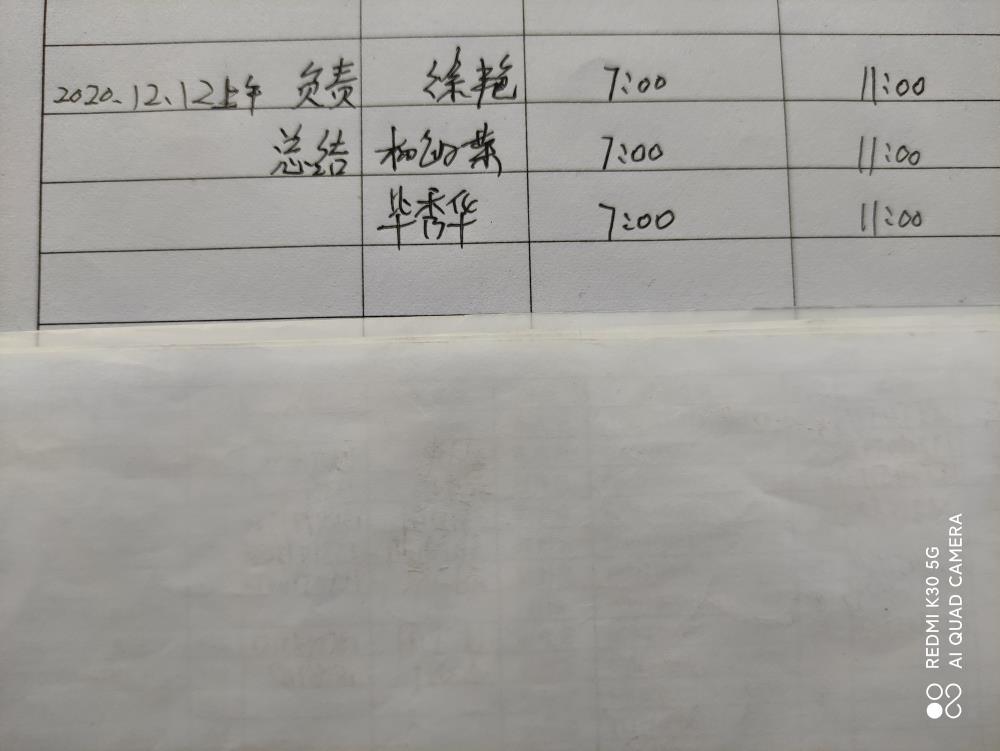 2020.12.12上午 负责 徐艳 7:00 11:00
总结 柳 荣 7:00 11:00
毕秀华 7:00 11:00
REDMI K30 5G
AI QUAD CAMERA